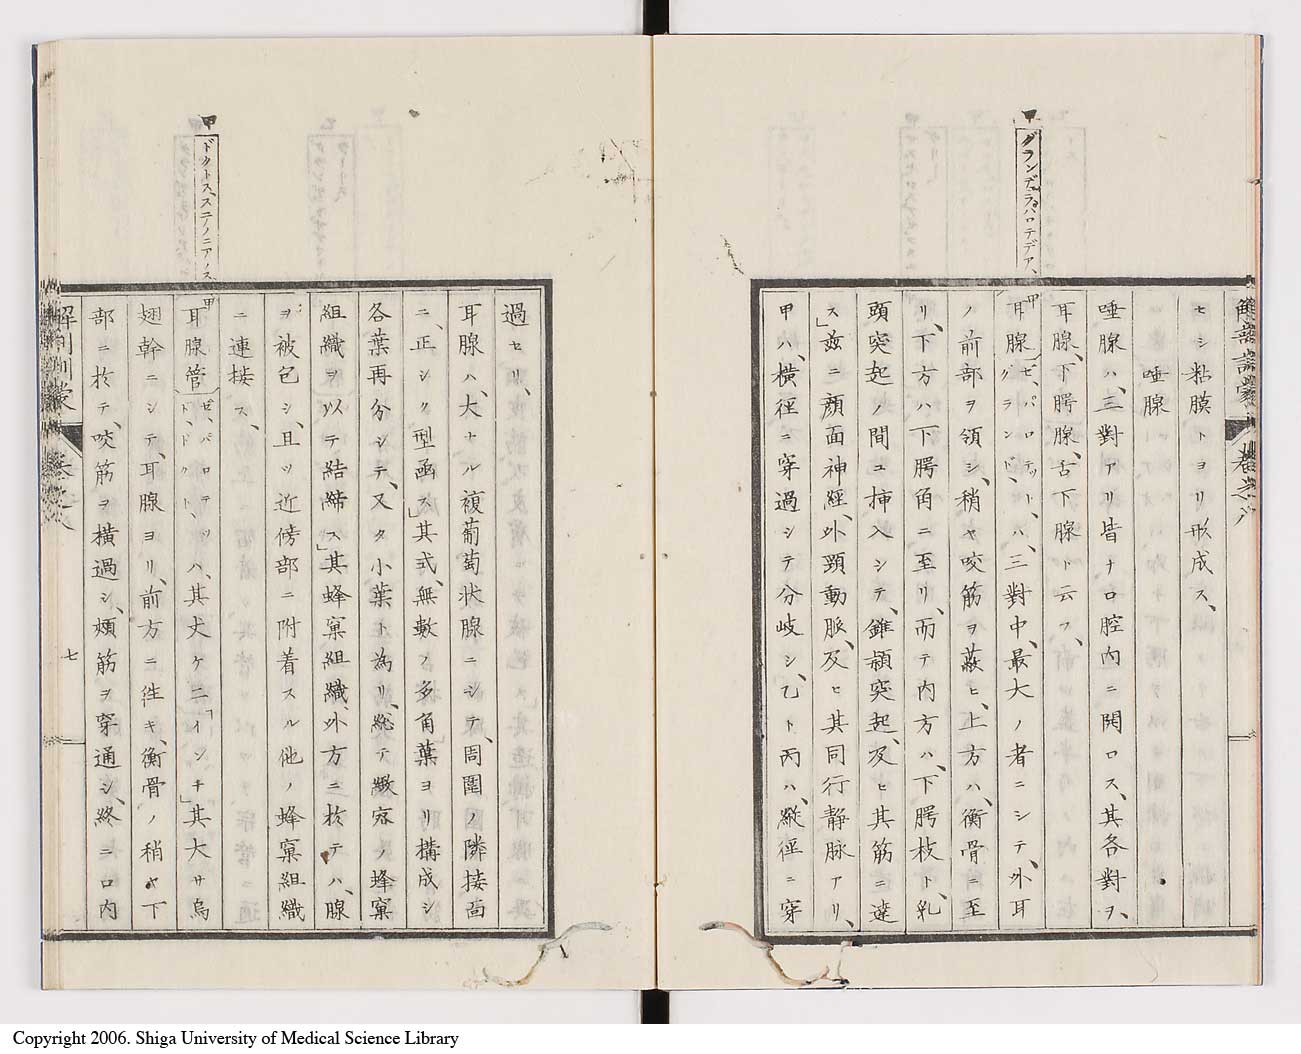 甲
グランデュラパロテデア、
セシ粘膜トヨリ形成ス、
唾腺
唾腺ハ、三對アリ皆ナ口腔内ニ開口ス、其各對ヲ、
耳腺、下腭腺、舌下腺ト云フ、
甲
耳腺
ゼ、パロテット、
グランド、
ハ、三對中、最大ノ者ニシテ、外耳
ノ前部ヲ領シ、稍ヤ咬筋ヲ蔽ヒ、上方ハ、衡骨ニ至
リ、下方ハ、下腭角ニ至リ、而テ内方ハ、下腭枝ト、乳
頭突起ノ間ニ挿入シテ、錐頴突起、及ヒ其筋ニ達
ス」玆ニ顔面神經、外頸動脈、及ヒ其同行静脉アリ、
甲ハ、横徑ニ穿過シテ分岐シ、乙ト丙ハ、縱徑ニ穿
甲
ドクトス、ステノニアノス
過セリ、
耳腺ハ、大ナル複葡萄状腺ニシテ、周圍ノ隣接面
ニ、正シク型函ス」其式、無數ノ多角葉ヨリ構成シ
各葉再分シテ、又タ小葉ト為リ、総テ緻宻ノ蜂窠
組織ヲ以テ結締ス」其蜂窠組織、外方ニ於テハ、腺
ヲ被包シ、且ツ近傍部ニ附着スル他ノ蜂窠組織
ニ連接ス、
甲
耳腺管
ゼ、パロテッ
ド、ドクト、
ハ、其丈ケ二「インチ」其大サ烏
翅幹ニシテ、耳腺ヨリ、前方ニ徃キ、衡骨ノ稍ヤ下
部ニ於テ、咬筋ヲ横過シ、頰筋ヲ穿通シ、終ニ口内
七
Copyright 2006. Shiga University of Medical Science Library